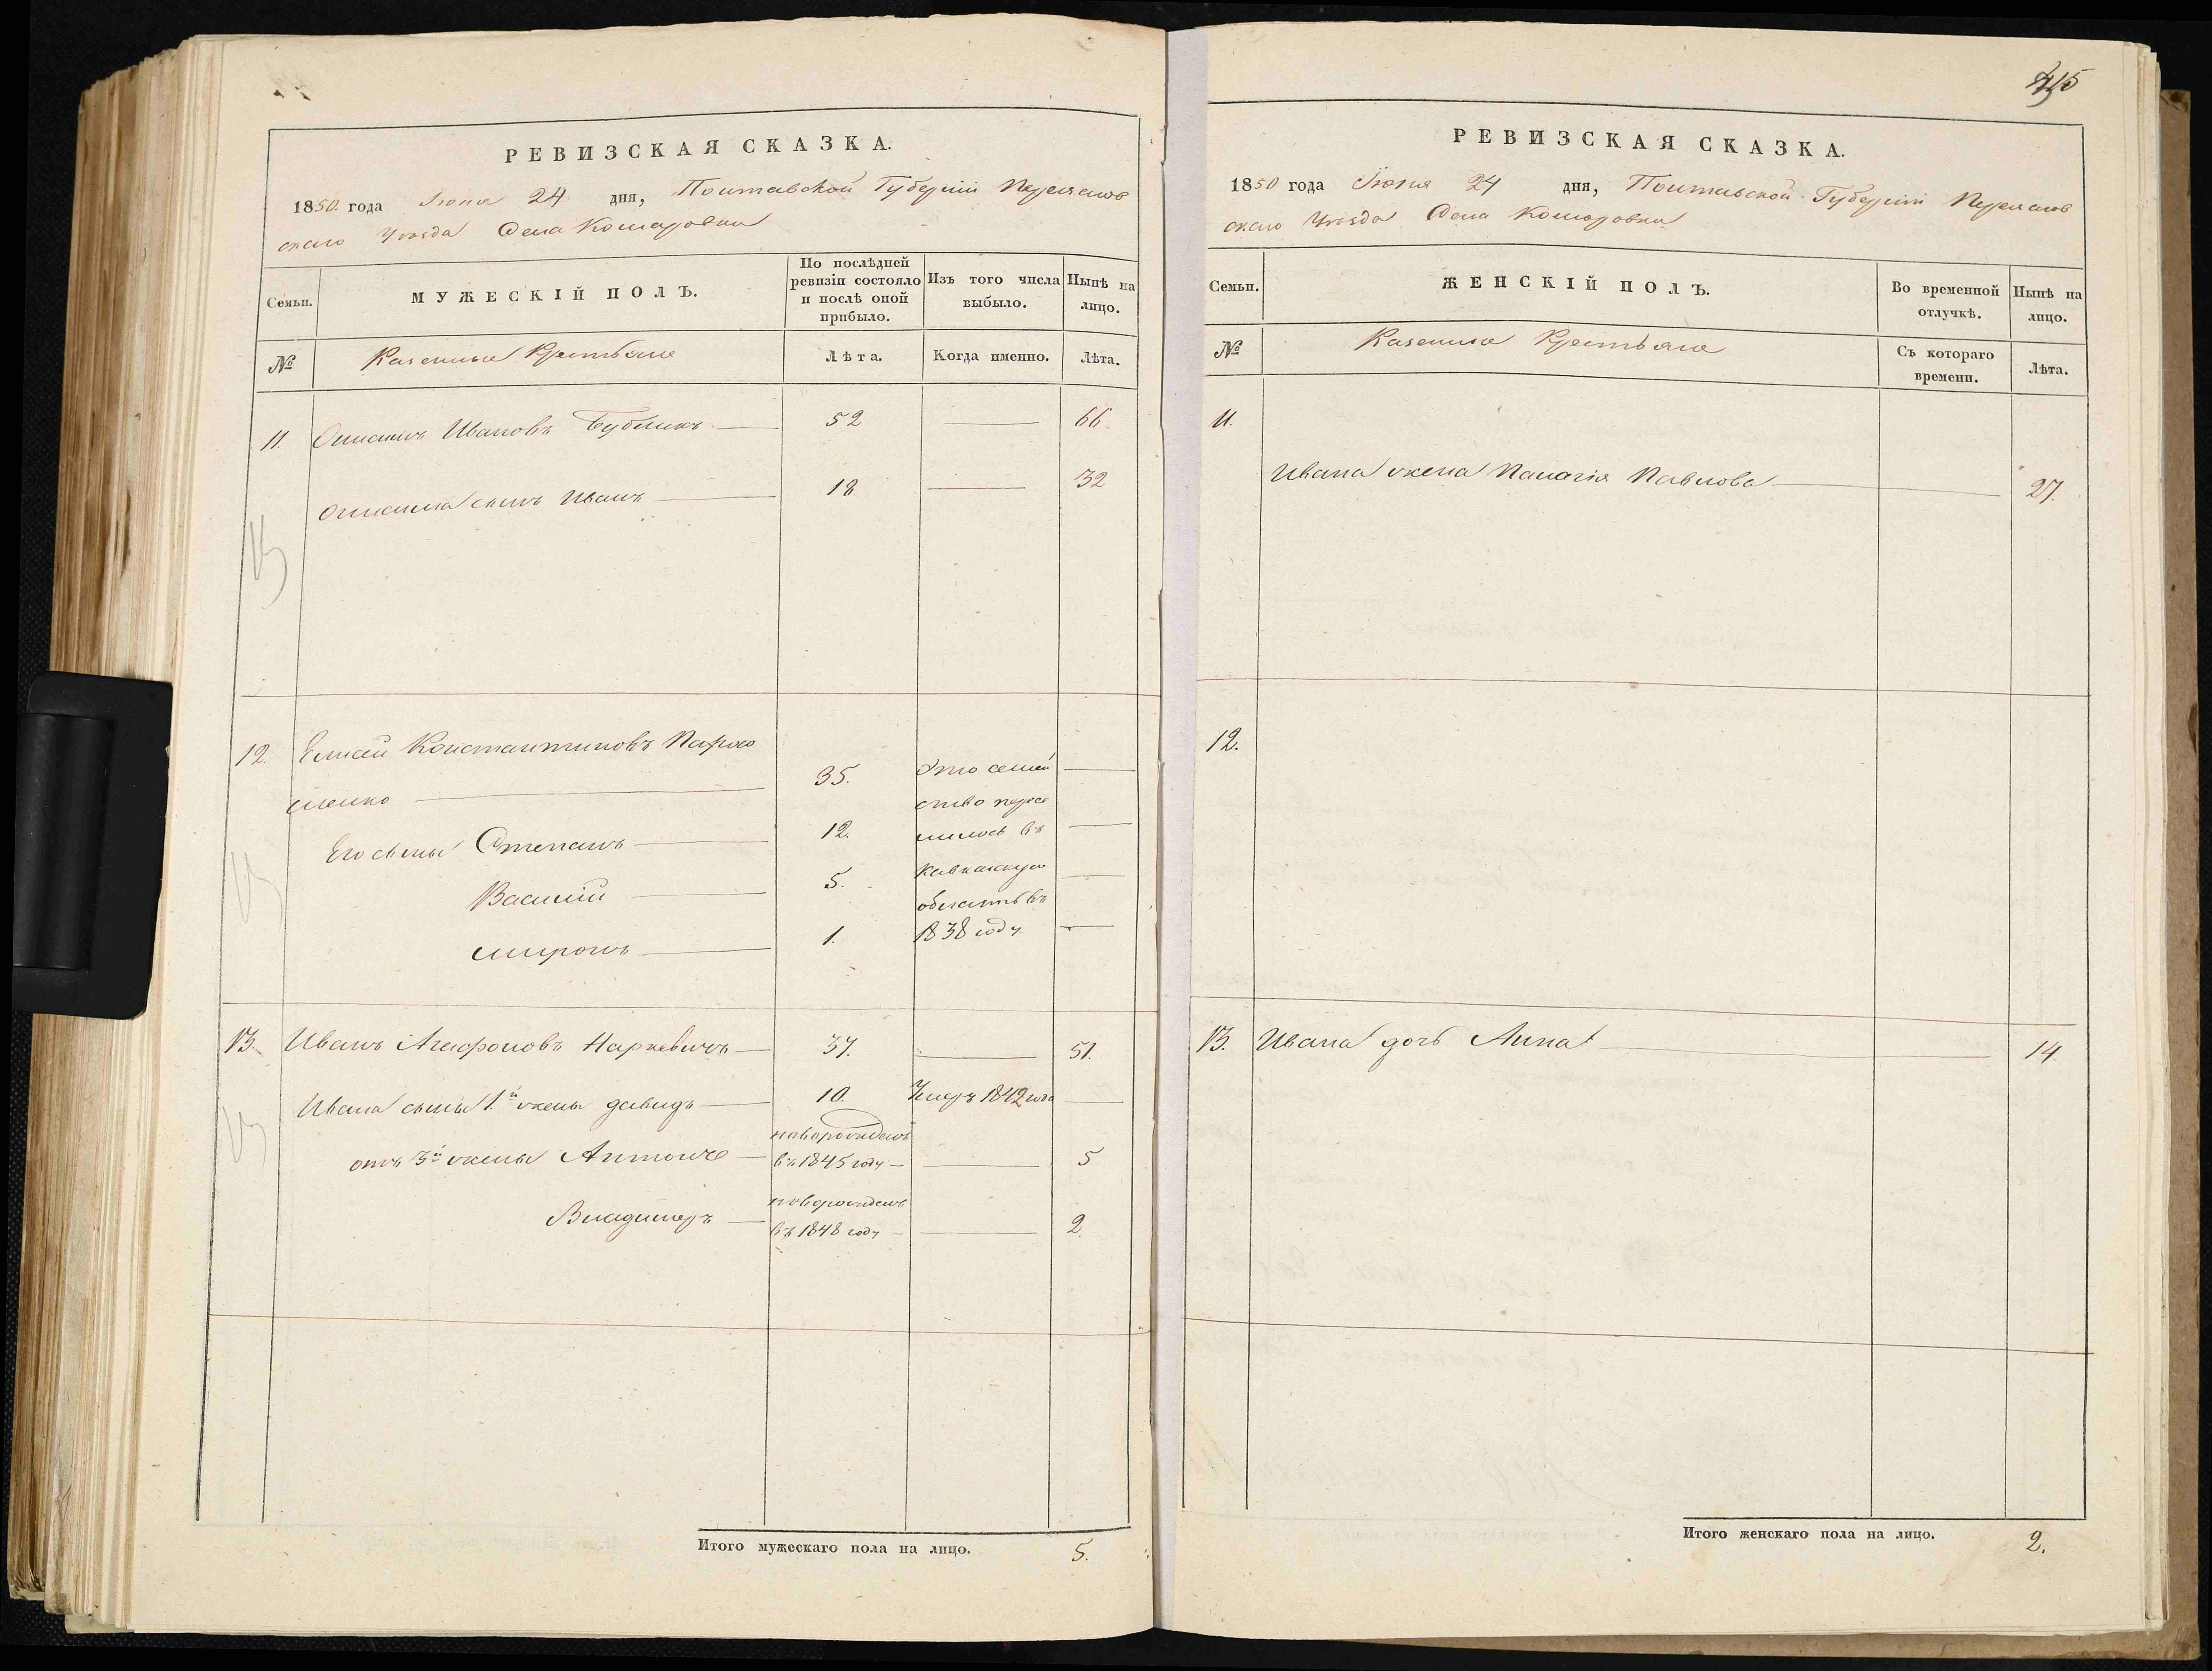 РЕВИЗСКАЯ СКАЗКА.
1850 года Июня 24 дня, Полтавской Губернии Переяслов
скаго Уѣзда Села Комаровки
Семьи.
МУЖЕСКІЙ ПОЛЪ.
По послѣдней ревизіи состояло и послѣ оной прибыло.
Изъ того числа выбыло.
Нынѣ на лицо.
№
Казенные Крестьяне
Лѣта.
Когда именно.
Лѣта.
11. Онисимъ Ивановъ Бубликъ 52 — 66
Онисима сынъ Иванъ 18. — 32
12. Елисей Константиновъ Пархо
менко 35. Это семей
ство пересе
Его сыны Степанъ 12. лилось въ
Василій 5. Кавказскую
область въ
Миронъ 1. 1838 году
13. Иванъ Агафоновъ Наркевичъ 37. — 51.
Ивана сыны 1й жены Давидъ 10. Умеръ 1842 года
отъ 3й жены Антонъ новорожденъ
въ 1845 году — 5
Владимеръ новорожденъ
въ 1848 году — 2
Итого мужескаго пола на лицо. 5.
415
РЕВИЗСКАЯ СКАЗКА.
1850 года Июня 24 дня, Полтавской Губернии Переяслов
скаго Уѣзда Села Комаровки
Семьи.
ЖЕНСКІЙ ПОЛЪ.
Во временной отлучкѣ.
Нынѣ на лицо.
№
Казенные Крестьяне
Съ котораго времени.
Лѣта.
11.
Ивана жена Палагія Павлова — 27.
12.
13. Ивана дочь Анна — 14.
Итого женскаго пола на лицо. 2.